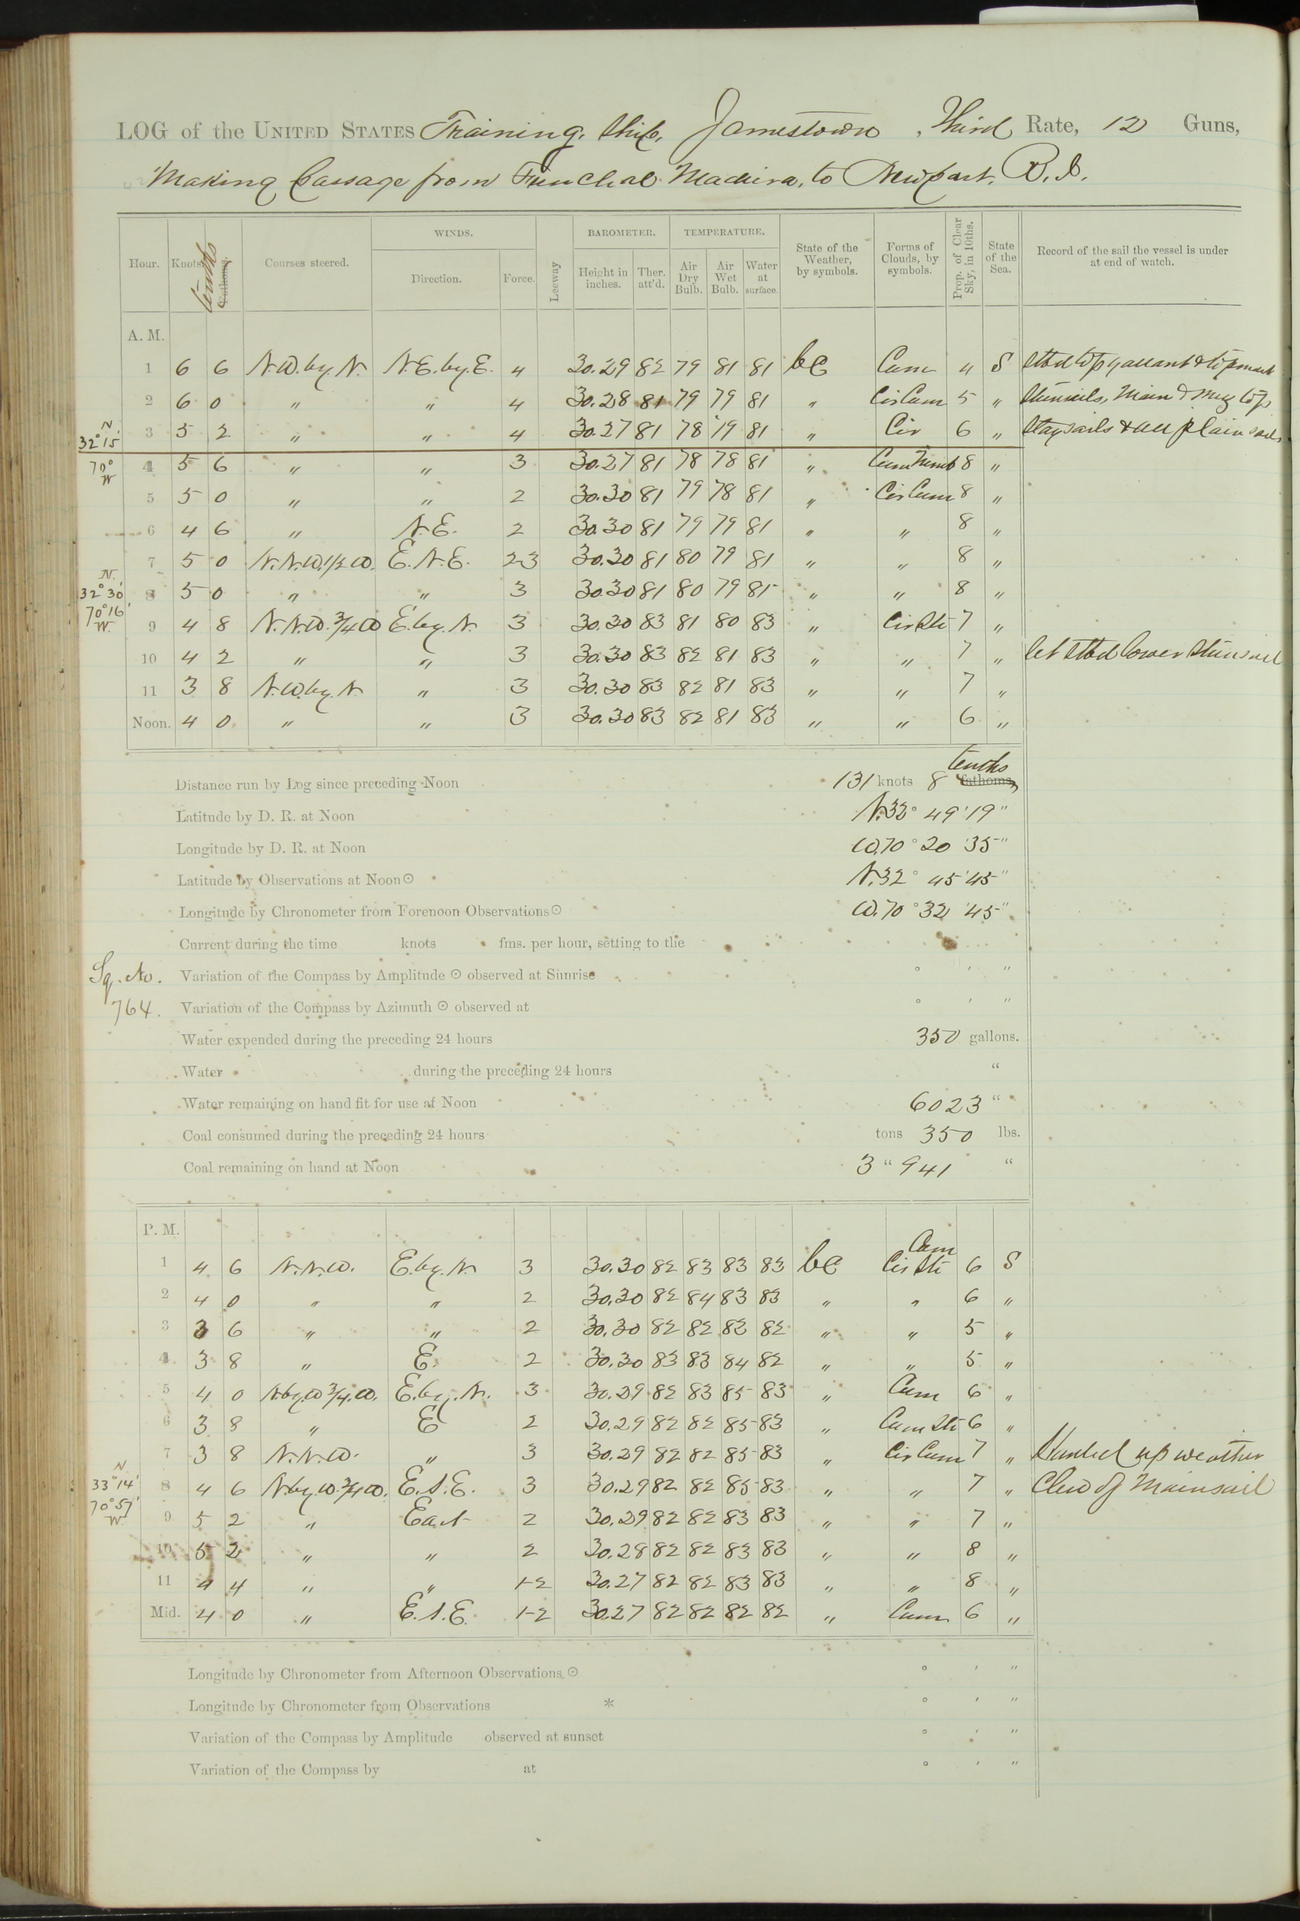 LOG of the UNITED STATES Training Ship, Jamestown, Third Rate, 12 Guns,
Making Passage from Funchal Madeira, to Newport, R.I.
Hour. Knots tenths Fathoms. Courses steered. WINDS. Direction. Force. Leeway BAROMETER. Height in inches. Ther. att'd. TEMPERATURE. Air Dry Bulb. Air Wet Bulb. Water at surface. State of the Weather, by symbols. Forms of Clouds, by symbols. Prop. of Clear Sky, in 10ths. State of the Sea. Record of the sail the vessel is under at end of watch.
A. M.
1 6 6 N.W. by N. N.E. by E. 4 30.29 82 79 81 81 bc Cum 4 S Stbd topgallant & topmast
2 6 0 " " 4 30.28 81 79 79 81 " Cir Cum 5 " Stunsails, Main & Miz top
N 32° 15' 3 5 2 " " 4 30.27 81 78 79 81 " Cir 6 " Staysails & all plain sail
70° W 4 5 6 " " 3 30.27 81 78 78 81 " Cum Nimb 8 "
5 5 0 " " 2 30.30 81 79 78 81 " Cir Cum 8 "
6 4 6 " N.E. 2 30.30 81 79 79 81 " " 8 "
7 5 0 N.N.W.1/2 W. E.N.E. 2-3 30.30 81 80 79 81 " " 8 "
N. 32° 30' 8 5 0 " " 3 30.30 81 80 79 81 " " 8 "
70° 16' W. 9 4 8 N.N.W. 3/4 W E. by N. 3 30.30 83 81 80 83 " Cir Str 7 "
10 4 2 " " 3 30.30 83 82 81 83 " " 7 " Set Stbd lower Stunsail
11 3 8 N.W. by N " 3 30.30 83 82 81 83 " " 7 "
Noon. 4 0 " " 3 30.30 83 82 81 83 " " 6 "
Distance run by Log since preceding Noon 131 knots 8 tenths fathoms,
Latitude by D. R. at Noon N. 32° 49' 19"
Longitude by D. R. at Noon W. 70° 20' 35"
Latitude by Observations at Noon ☉ N. 32° 45' 45"
Longitude by Chronometer from Forenoon Observations ☉ W. 70° 32' 45"
Current during the time knots fms. per hour, setting to the
Sq. No. Variation of the Compass by Amplitude ☉ observed at Sunrise ° ' "
764. Variation of the Compass by Azimuth ☉ observed at ° ' "
Water expended during the preceding 24 hours 350 gallons.
Water during the preceding 24 hours "
Water remaining on hand fit for use at Noon 6023 "
Coal consumed during the preceding 24 hours tons 350 lbs.
Coal remaining on hand at Noon 3 " 941 "
P. M.
1 4 6 N.N.W. E. by N. 3 30.30 82 83 83 83 bc Cum Cir Str 6 S
2 4 0 " " 2 30.30 82 84 83 83 " " 6 "
3 3 6 " " 2 30.30 82 82 83 82 " " 5 "
4 3 8 " E. 2 30.30 83 83 84 82 " " 5 "
5 4 0 N. by W 3/4 W. E. by N. 3 30.29 82 83 85 83 " Cum 6 "
6 3 8 " E 2 30.29 82 82 85 83 " Cum Str 6 "
7 3 8 N.N.W. " 3 30.29 82 82 85 83 Cir Cum 7 " Hauled up weather
N 33° 14' 8 4 6 N by W 3/4 W. E.S.E. 3 30.29 82 82 85 83 " " 7 " Clew of Mainsail
70° 57' W 9 5 2 " East 2 30.29 82 82 83 83 " " 7 "
10 5 2 " " 2 30.28 82 82 83 83 " " 8 "
11 4 4 " " 1-2 30.27 82 82 83 83 " " 8 "
Mid. 4 0 " E.S.E. 1-2 30.27 82 82 82 82 " Cum 6 "
Longitude by Chronometer from Afternoon Observations ☉ ° ' "
Longitude by Chronometer from Observations * ° ' "
Variation of the Compass by Amplitude observed at sunset ° ' "
Variation of the Compass by at ° ' "